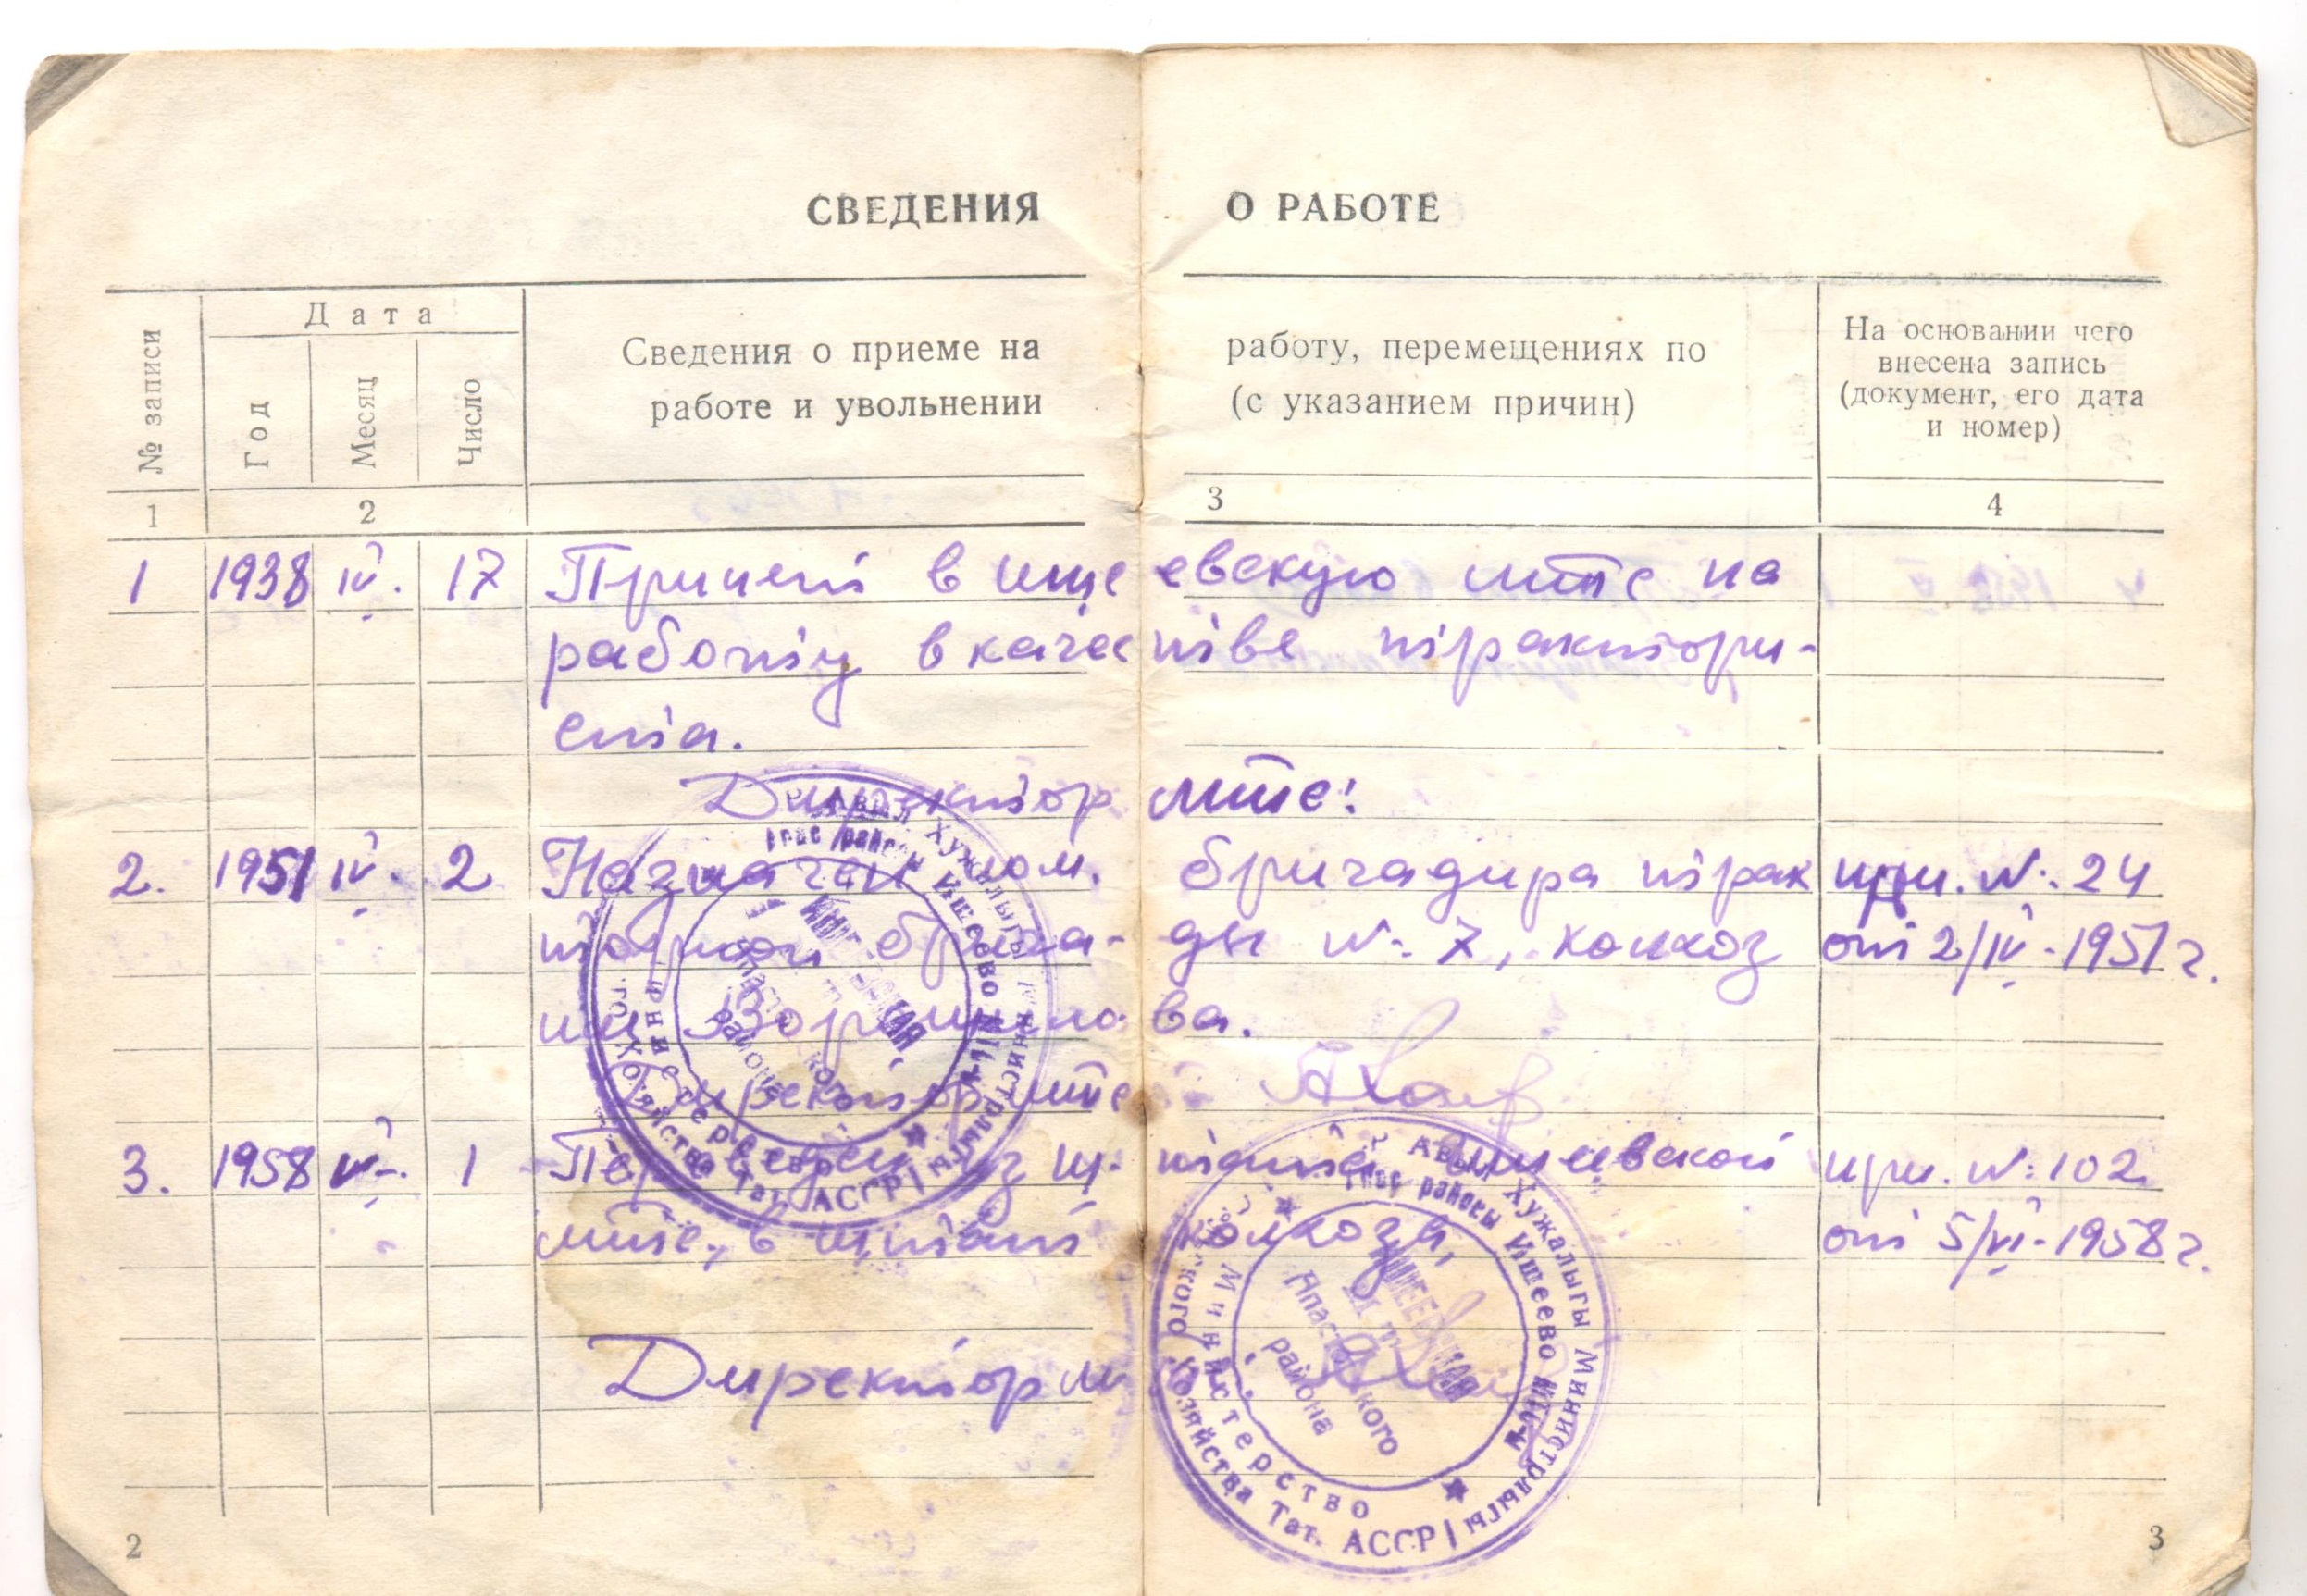 СВЕДЕНИЯ О РАБОТЕ
№ записи
Дата
Год
Месяц
Число
Сведения о приеме на работу, перемещениях по
работе и увольнении (с указанием причин)
На основании чего
внесена запись
(документ, его дата
и номер)
1 2 3 4
1 1938 IV. 17 Принят в Ищеевскую мтс на
работу в качестве трактори-
ста.
Директор мтс:
2. 1951 IV. 2 Назначен пом. бригадира трак при. №: 24
торной брига- ды №: 7, колхоз от 2/IV-1951 г.
им Ворошилова.
Директор мтс
3. 1958 VI-. 1 Переведен из штата Ишеевской при. №: 102
мтс, в штат колхоза, от 5/VI-1958 г.
Директор м
Авыл Хужалыгы Министрлыгы
районы Ишеево МТСы
Министерство
Хозяйства Тат. АССР
района
Авыл Хужалыгы Министрлыгы
районы Ишеево МТСы
Министерство
Хозяйства Тат. АССР
ИШЕЕВСКАЯ
МТС
Апастовского
района
2
3